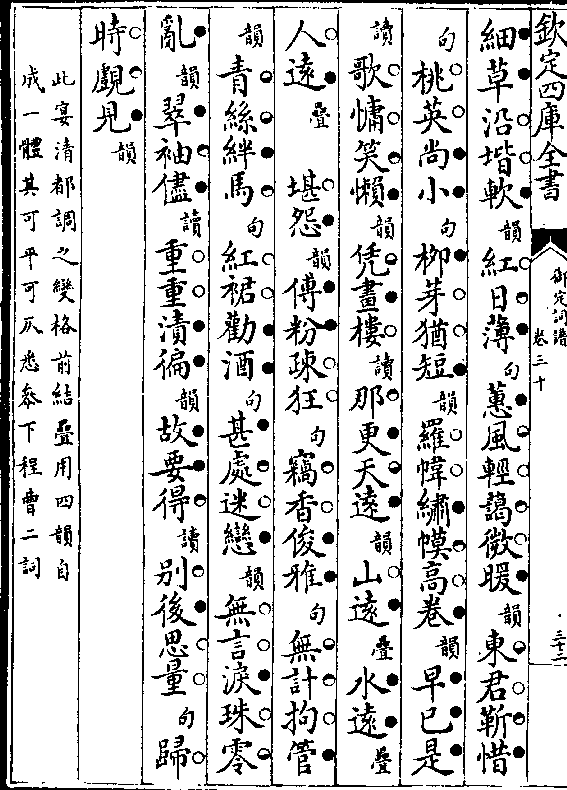 欽定四庫全書
御定詞譜
卷三十
三十二
細草沿堦軟韻紅日薄句蕙風輕靄微暖韻東君靳惜
句桃英尚小句柳芽猶短韻羅幃繡幙高卷韻早已是
讀歌慵笑懶韻凭畫樓讀那更天遠韻山遠疊水遠疊
人遠疊 堪怨韻傅粉疎狂句竊香俊雅句無計拘管
韻青絲絆馬句紅裙勸酒句甚處迷戀韻無言淚珠零
亂韻翠袖儘讀重重漬徧韻故要得讀別後思量句歸
時覷見韻
此宴清都調之變格前結疊用四韻自
成一體其可平可仄悉參下程曹二詞